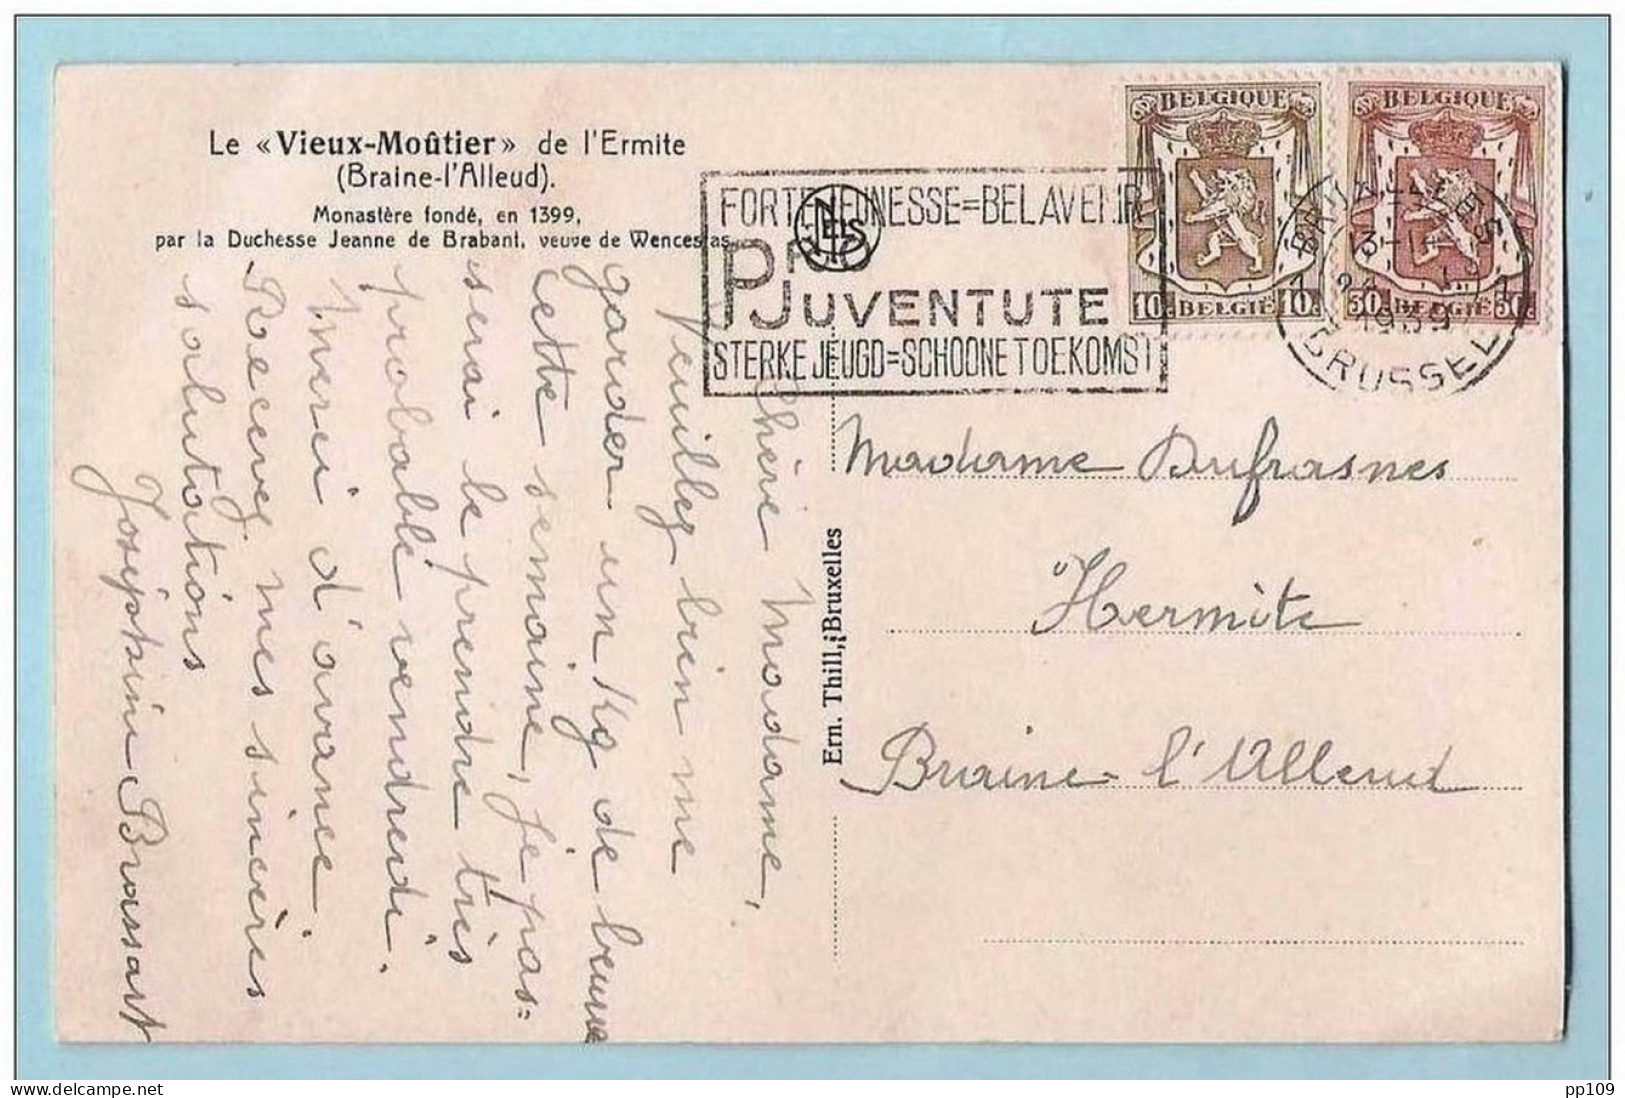 Le «Vieux-Moûtier» de l'Ermite
(Braine-l'Alleud).
Monastère fondé, en 1399,
par la Duchesse Jeanne de Brabant, veuve de Wenceslas
FORTE JEUNESSE=BEL AVENIR
PRO
JUVENTUTE
STERKE JEUGD=SCHOONE TOEKOMST
NELS
BELGIQUE
10c BELGIË 10c
BELGIQUE
30c BELGIË 30c
BRUXELLES
13-14
1939
BRUSSEL
Chère Madame,
Veuillez bien me
garder un Kg de beurre
cette semaine, je pas=
serai le prendre très
probablé vendredi.
Merci d'avance
Recevez mes sincères
salutations
Joséphine Brassart
Ern. Thill, Bruxelles
Madame Dufrasnes
Hermite
Braine-l'Alleud
pp109